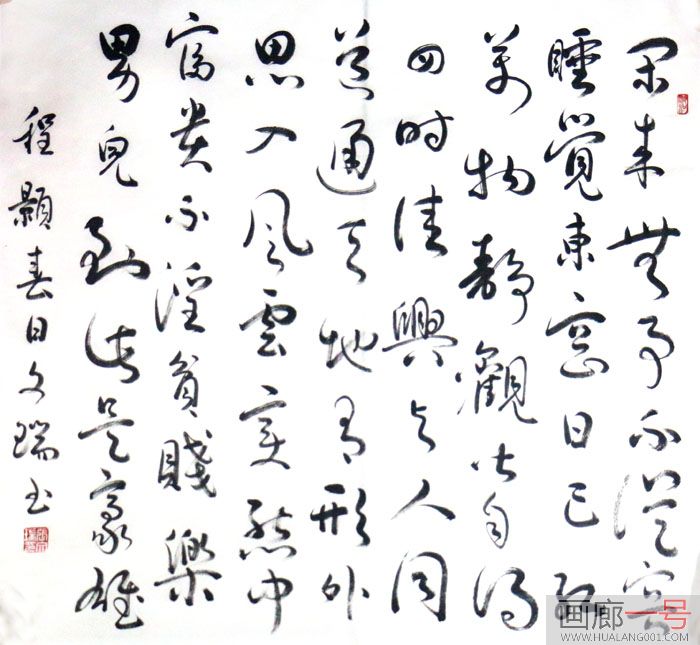 闲来無事不從容
睡覺東窗日已紅
萬物静觀皆自得
四時佳興与人同
道通天地有形外
思入風雲变態中
富贵不淫貧賤樂
男兒到此是豪雄
程顥春日文瑞书
画廊一号
WWW.HUALANG001.COM